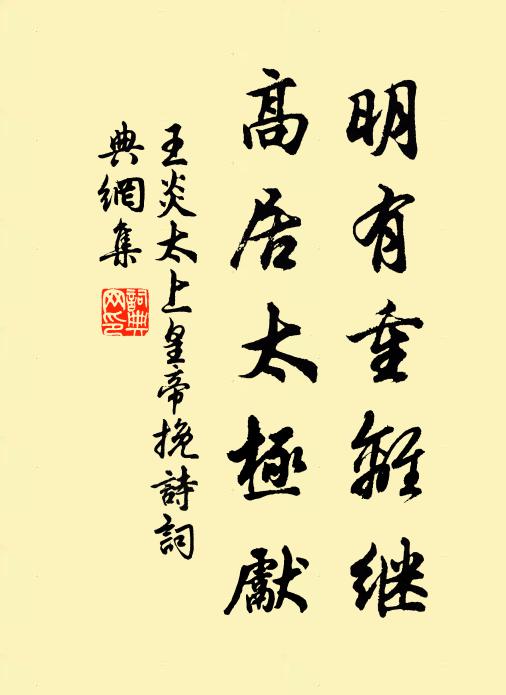 明有重離继
高居太極獻
王炎太上皇帝挽詩詞
典網集
詞典
网印